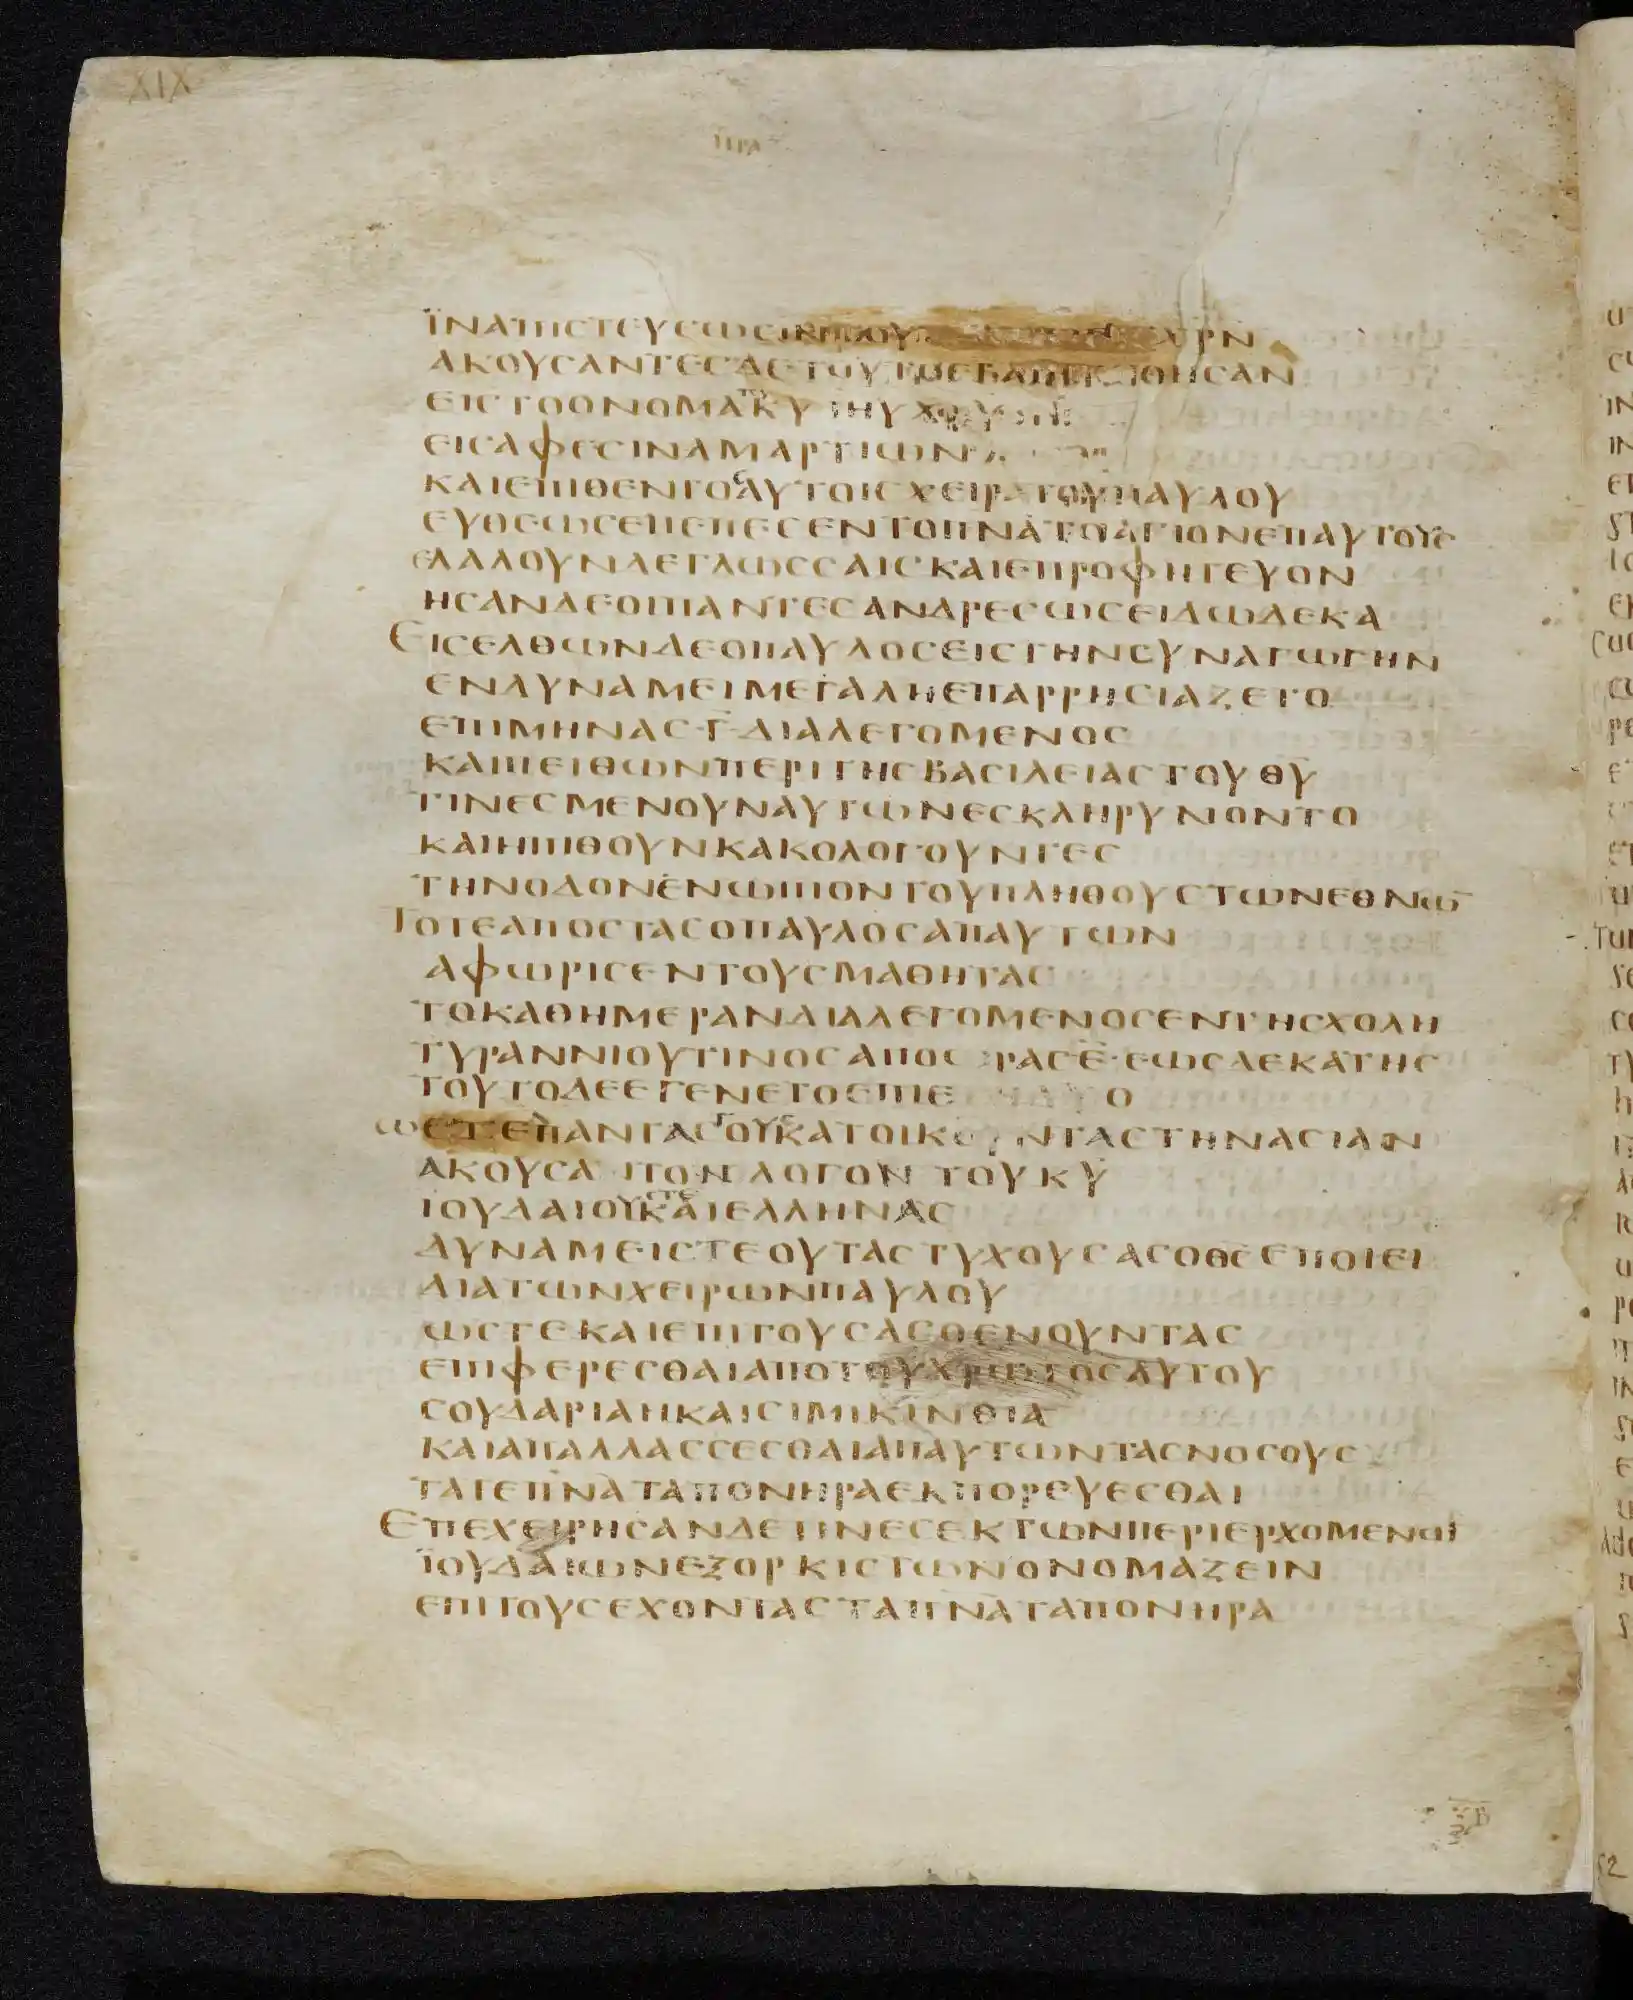 XIX
ΠΡΑ
ΪΝΑΠΙСΤΕΥСΩСΙΝ ΧΡΝ
ΑΚΟΥСΑΝΤΕСΔΕΤΟΥΤΟΕΒΑΠΤΙСΘΗСΑΝ
ΕΙСΤΟΟΝΟΜΑΤΟΥΚΥΙΗΥΧΡΥ
ΕΙСΑΦΕСΙΝΑΜΑΡΤΙΩΝ
ΚΑΙΕΠΙΘΕΝΤΟСΑΥΤΟΙСΧΕΙΡΑΤΟΥΠΑΥΛΟΥ
ΕΥΘΕΩСΕΠΕΠΕСΕΝΤΟΠΝΑΤΟΑΓΙΟΝΕΠΑΥΤΟΥС
ΕΛΑΛΟΥΝΔΕΓΛΩССΑΙСΚΑΙΕΠΡΟΦΗΤΕΥΟΝ
ΗСΑΝΔΕΟΙΠΑΝΤΕСΑΝΔΡΕСΩСΕΙΔΩΔΕΚΑ
ΕΙСΕΛΘΩΝΔΕΟΠΑΥΛΟСΕΙСΤΗΝСΥΝΑΓΩΓΗΝ
ΕΝΔΥΝΑΜΕΙΜΕΓΑΛΗΕΠΑΡΡΗСΙΑΖΕΤΟ
ΕΠΙΜΗΝΑС·Γ·ΔΙΑΛΕΓΟΜΕΝΟС
ΚΑΙΠΕΙΘΩΝΠΕΡΙΤΗСΒΑСΙΛΕΙΑСΤΟΥΘΥ
ΤΙΝΕСΜΕΝΟΥΝΑΥΤΩΝΕСΚΛΗΡΥΝΟΝΤΟ
ΚΑΙΗΠΙΘΟΥΝΚΑΚΟΛΟΓΟΥΝΤΕС
ΤΗΝΟΔΟΝΕΝΩΠΙΟΝΤΟΥΠΛΗΘΟΥСΤΩΝΕΘΝΩ̅
ΤΟΤΕΑΠΟСΤΑСΟΠΑΥΛΟСΑΠΑΥΤΩΝ
ΑΦΩΡΙСΕΝΤΟΥСΜΑΘΗΤΑС
ΤΟΚΑΘΗΜΕΡΑΝΔΙΑΛΕΓΟΜΕΝΟСΕΝΤΗСΧΟΛΗ
ΤΥΡΑΝΝΙΟΥΤΙΝΟСΑΠΟ ΡΑСΕ·ΕΩСΔΕΚΑΤΗС
ΤΟΥΤΟΔΕΕΓΕΝΕΤΟΕΠΙΕΤΗΔΥΟ
ΩСΤΕΠΑΝΤΑСΤΟΥСΚΑΤΟΙΚΟΥΝΤΑСΤΗΝΑСΙΑΝ
ΑΚΟΥСΑΙΤΟΝΛΟΓΟΝΤΟΥΚΥ
ΙΟΥΔΑΙΟΥСΤΕΚΑΙΕΛΛΗΝΑС
ΔΥΝΑΜΕΙСΤΕΟΥΤΑСΤΥΧΟΥСΑСΟΘСΕΠΟΙΕΙ
ΔΙΑΤΩΝΧΕΙΡΩΝΠΑΥΛΟΥ
ΩСΤΕΚΑΙΕΠΙΤΟΥСΑСΘΕΝΟΥΝΤΑС
ΕΠΙΦΕΡΕСΘΑΙΑΠΟΤΟΥΧΡΩΤΟСΑΥΤΟΥ
СΟΥΔΑΡΙΑΗΚΑΙСΙΜΙΚΙΝΘΙΑ
ΚΑΙΑΠΑΛΛΑССΕСΘΑΙΑΠΑΥΤΩΝΤΑСΝΟСΟΥС
ΤΑΤΕΠΝΑΤΑΠΟΝΗΡΑΕΚΠΟΡΕΥΕСΘΑΙ
ΕΠΕΧΕΙΡΗСΑΝΔΕΤΙΝΕСΕΚΤΩΝΠΕΡΙΕΡΧΟΜΕΝΩ̅
ΪΟΥΔΑΙΩΝΕΞΟΡΚΙСΤΩΝΟΝΟΜΑΖΕΙΝ
ΕΠΙΤΟΥСΕΧΟΝΤΑСΤΑΠΝΑΤΑΠΟΝΗΡΑ